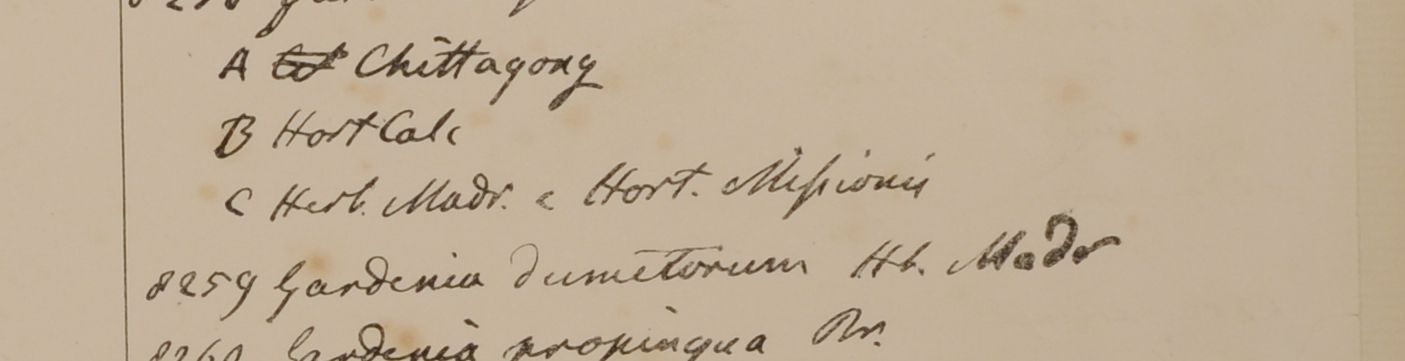 A Chittagong
B Hort Calc
C Herb. Madr. e Hort. Missionis
8259 Gardenia dumetorum Hb. Madr
Gardenia propinqua Br.